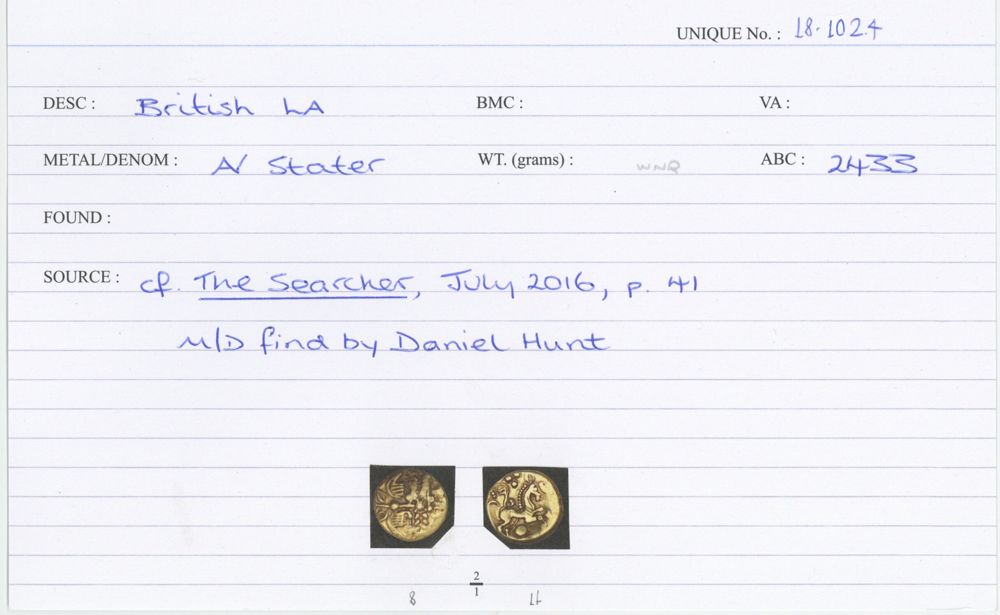 UNIQUE No. : 18.1024
DESC : British LA BMC : VA :
METAL/DENOM : A/ Stater WT. (grams) : WNR ABC : 2433
FOUND :
SOURCE : cf. The Searcher, July 2016, p. 41
M/D find by Daniel Hunt
2
1
8